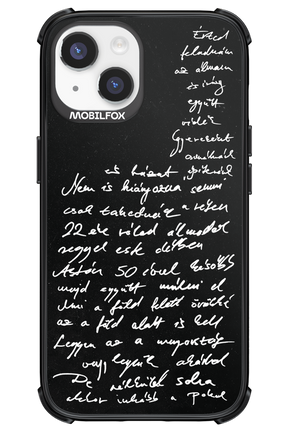 MOBILFOX
Érted
feladnám
az álmaim
és
együtt
Gyerekeket
csinálnék
és házat építenék
Nem is hiányozna semmi
csak takarónak a
22 éve rólad álmodok
reggel este délben
Aztán 50 évvel később
majd együtt múlni el
Ami a föld felett örökké
az a föld alatt is kell
Legyen az a mennyország
vagy legyen akárhol
De nélküled soha
akkor inkább a pokol